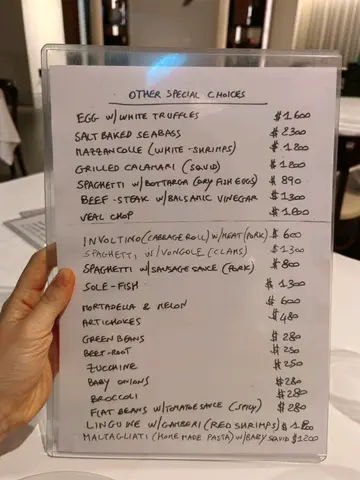 OTHER SPECIAL CHOICES
EGG W/ WHITE TRUFFLES $1600
SALT BAKED SEABASS $2300
MAZZANCOLLE (WHITE-SHRIMPS) $1200
GRILLED CALAMARI (SQUID) $1200
SPAGHETTI W/BOTTARGA (DRY FISH EGGS) $890
BEEF-STEAK W/BALSAMIC VINEGAR $1300
VEAL CHOP $1800
INVOLTINO (CABBAGE ROLL) W/MEAT (PORK) $600
SPAGHETTI, W/VONGOLE (CLAMS) $1300
SPAGHETTI W/SAUSAGE SAUCE (PORK) $800
SOLE-FISH $1300
MORTADELLA & MELON $600
ARTICHOKES $480
GREEN BEANS $280
BEET-ROOT $250
ZUCCHINE $250
BABY ONIONS $280
BROCCOLI $280
FLAT BEANS W/TOMATOE SAUCE (SPICY) $280
LINGUINE W/GAMBERI (RED SHRIMPS)
MALTAGLIATI (HOME MADE PASTA) W/BABY SQUID $1200